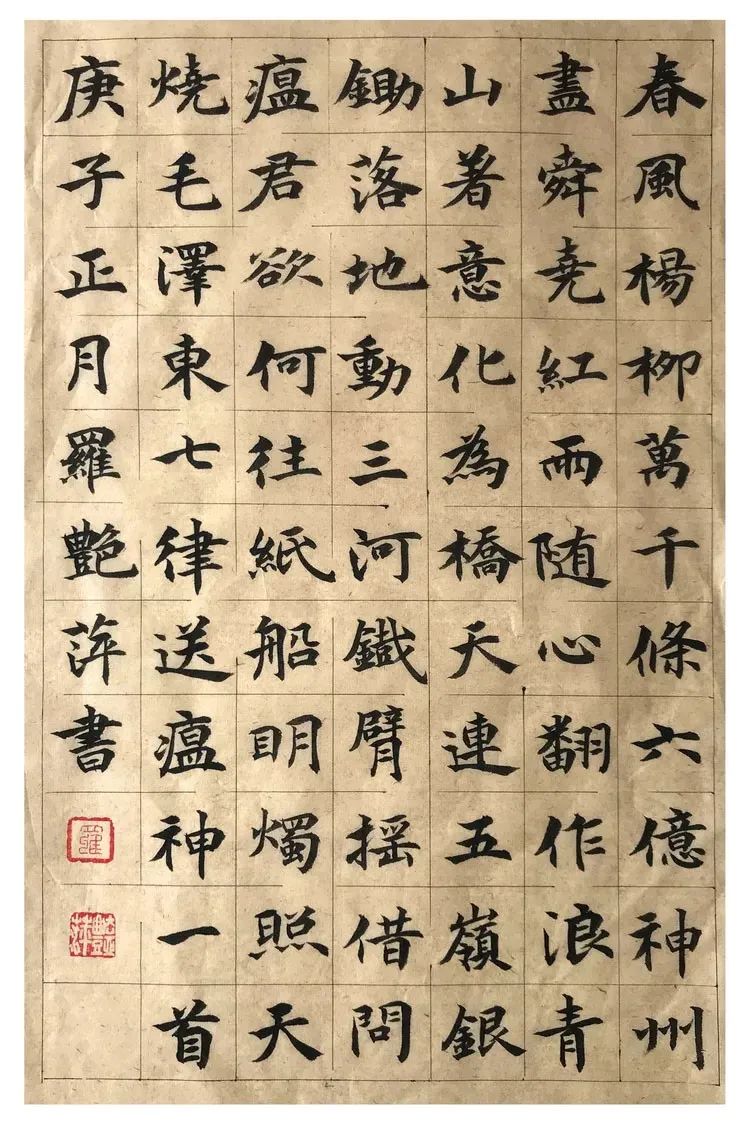 春風楊柳萬千條六億神州
盡舜堯紅雨随心翻作浪青
山著意化為橋天連五嶺銀
鋤落地動三河鐵臂摇借問
瘟君欲何往紙船明燭照天
燒毛澤東七律送瘟神一首
庚子正月羅艷萍書
羅